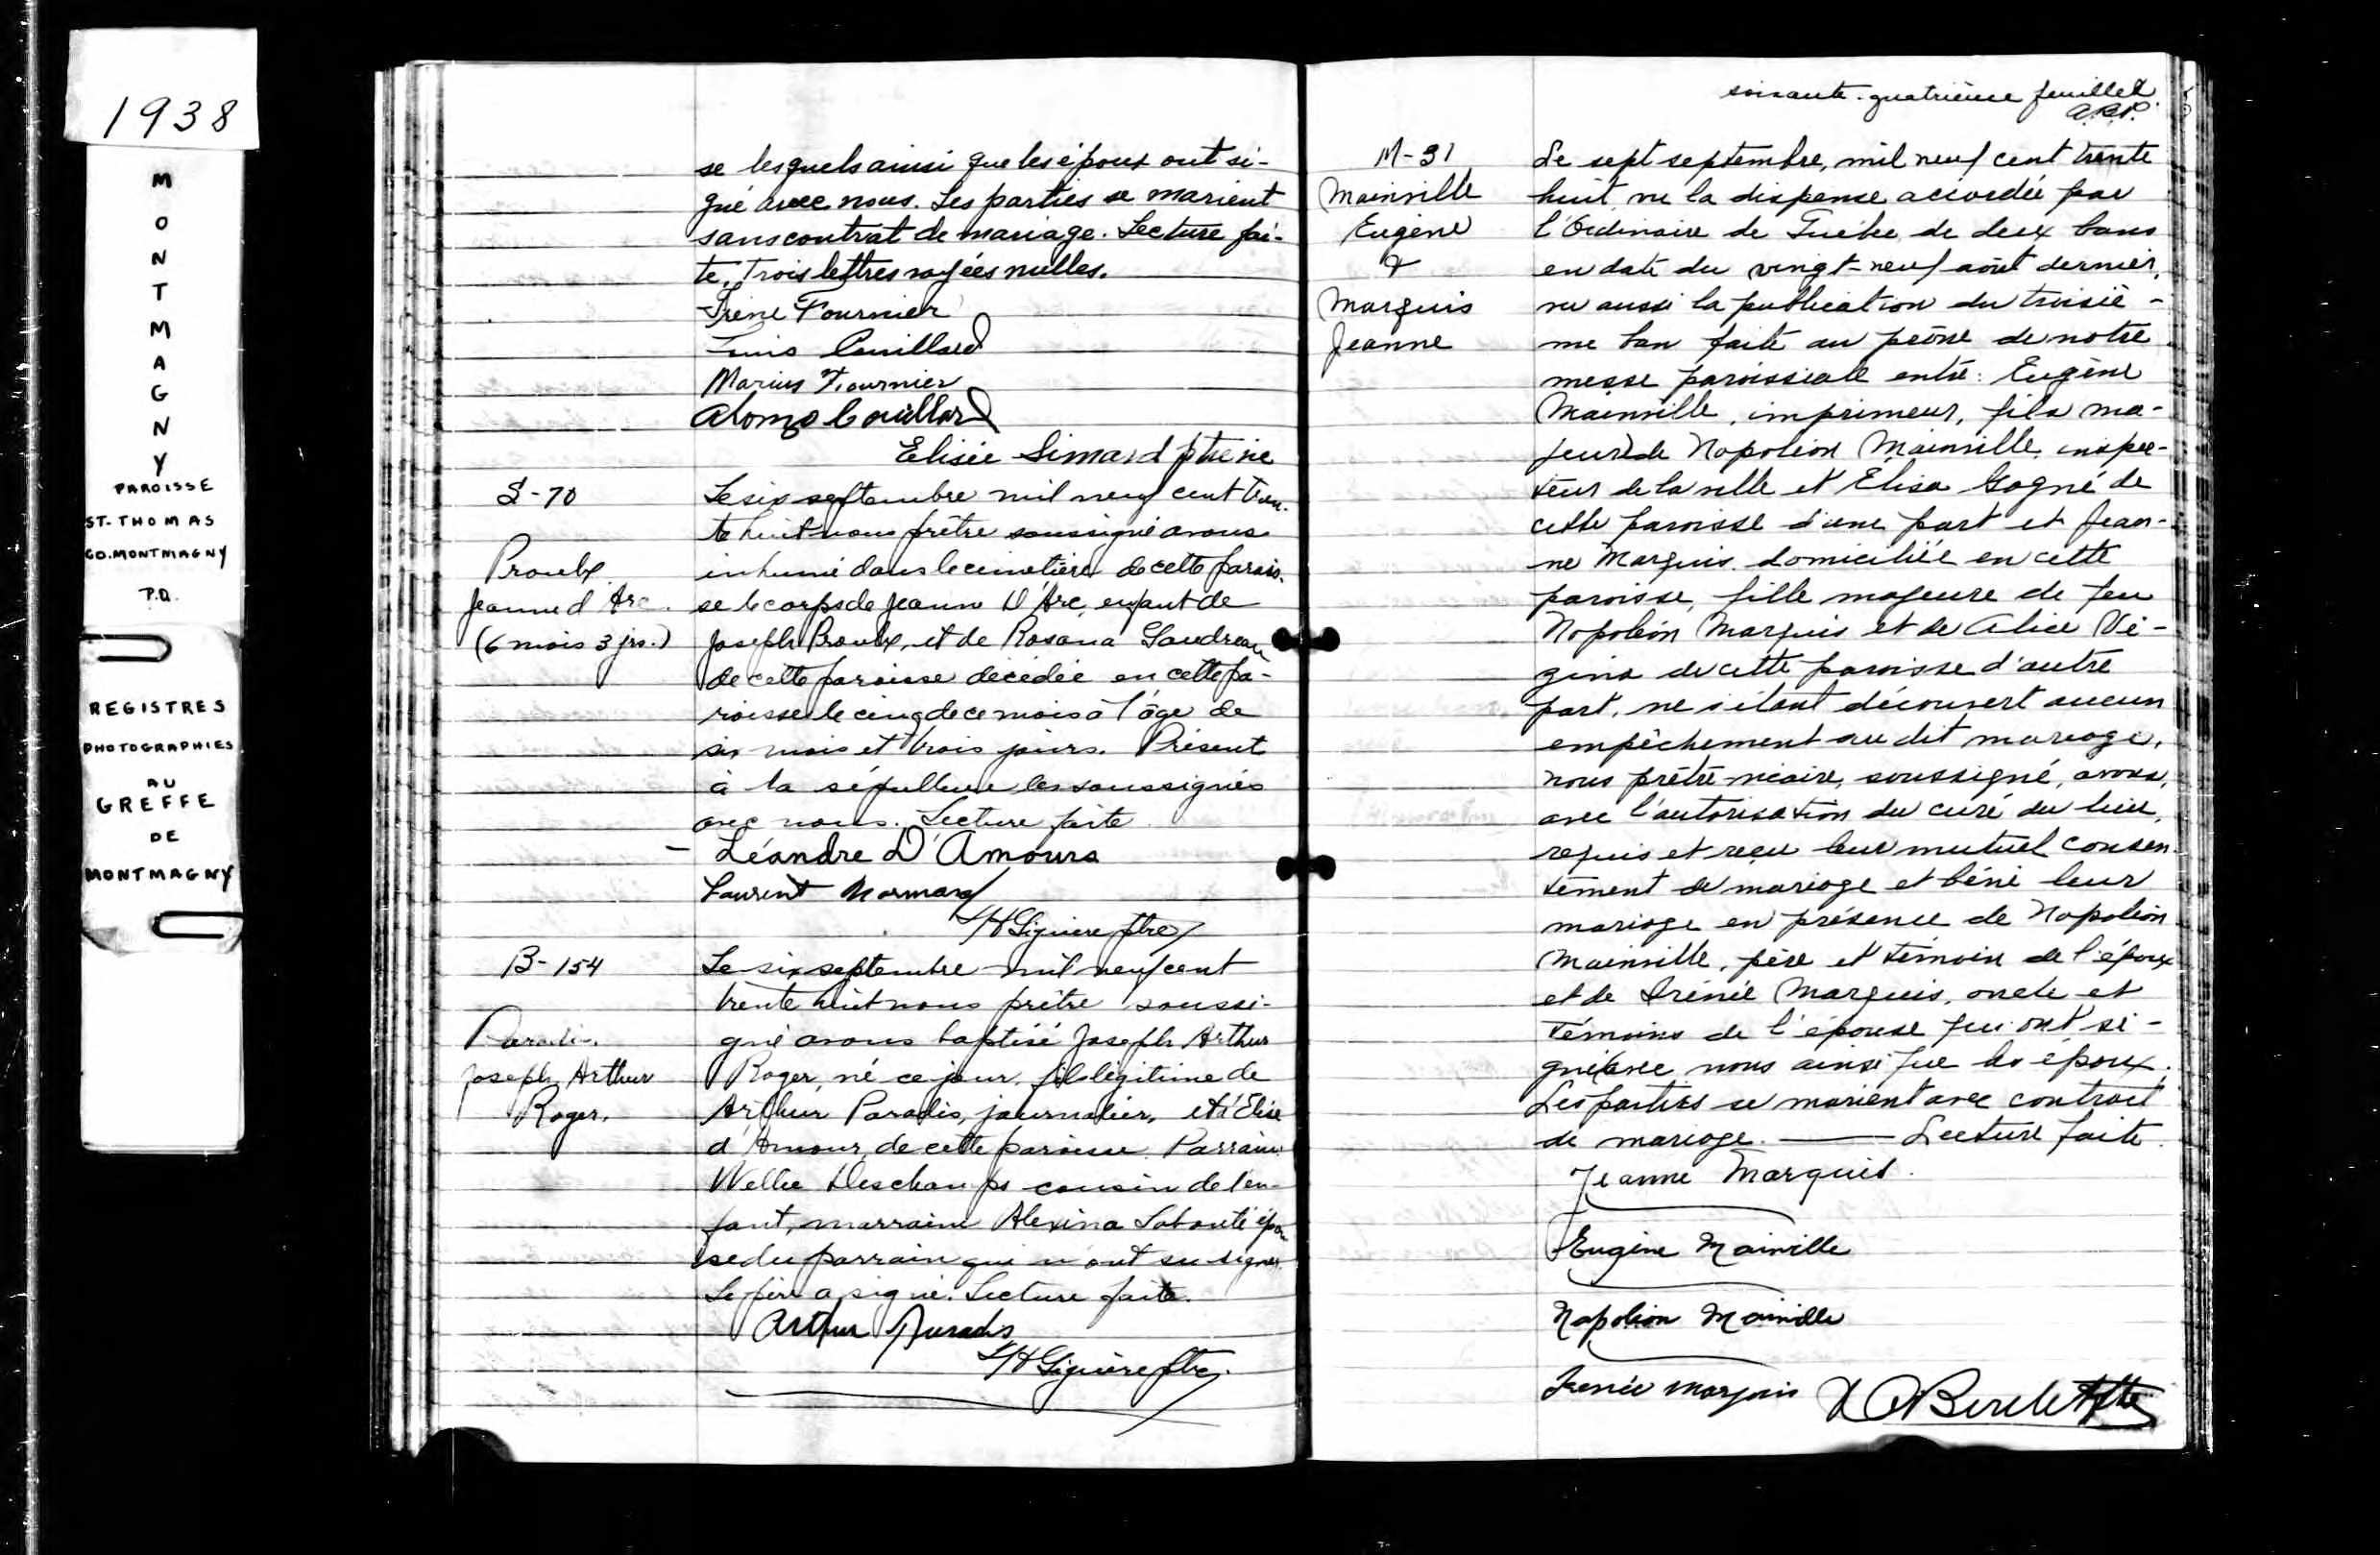 1938
M
O
N
T
M
A
G
N
Y
PAROISSE
ST-THOMAS
CO. MONTMAGNY
P.Q.
REGISTRES
PHOTOGRAPHIES
AU
GREFFE
DE
MONTMAGNY
se lesquels ainsi que les époux ont si-
gné avec nous. Les parties se marient
sans contrat de mariage. Lecture fai-
te. Trois lettres rayées nulles.
Irène Fournier
Couillard
Marius Fournier
Alonzo Couillard
Elisée Simard ptre vic
S-70
Proulx
Jeanne d'Arc.
(6 mois 3 jrs.)
Le six septembre mil neuf cent tren-
te huit nous prêtre soussigné avons
inhumé dans le cimetière de cette parois-
se le corps de Jeanne D'Arc, enfant de
Joseph Proulx, et de Rosana Gaudreau
de cette paroisse décédée en cette pa-
roisse le cinq de ce mois à l'âge de
six mois et trois jours. Présent
à la sépulture les soussignés
avec nous. Lecture faite
Léandre D'Amours
Laurent Normand
Siguière ptre
B-154
Paradis.
Joseph Arthur
Roger.
Le six septembre mil neuf cent
trente huit nous prêtre soussi-
gné avons baptisé Joseph Arthur
Roger, né ce jour, fils légitime de
Arthur Paradis, journalier, et d'Elise
d'Amour, de cette paroisse. Parrain
Wellie Deschamps cousin de l'en-
fant, marraine Alexina épou
se du parrain qui n'ont su signer.
Le père a signé. Lecture faite.
Arthur Paradis
Siguière ptre.
soixante-quatrième feuillet
M-31
Mainville
Eugène
&
Marquis
Jeanne
Le sept septembre, mil neuf cent trente
huit, vu la dispense accordée par
l'Ordinaire de Québec de deux bans
en date du vingt-neuf août dernier,
vu aussi la publication du troisiè-
me ban faite au prône de notre
messe paroissiale entre: Eugène
Mainville, imprimeur, fils ma-
jeur de Napoléon Mainville, inspec-
teur de la ville et Elisa Gagné de
cette paroisse d'une part et Jean-
ne Marquis domiciliée en cette
paroisse, fille majeure de feu
Napoléon Marquis et de Alice Vé-
zina de cette paroisse d'autre
part, ne s'étant découvert aucun
empêchement au dit mariage,
nous prêtre vicaire, soussigné, avons,
avec l'autorisation du curé du lieu,
requis et reçu leur mutuel consen-
tement de mariage et béni leur
mariage en présence de Napoléon
Mainville, père et témoin de l'époux
et de Irénée Marquis, oncle et
témoins de l'épouse qui ont si-
gné avec nous ainsi que les époux.
Les parties se marient avec contrat
de mariage. — Lecture faite.
Jeanne Marquis.
Eugène Mainville
Napoléon Mainville
Irenée Marquis